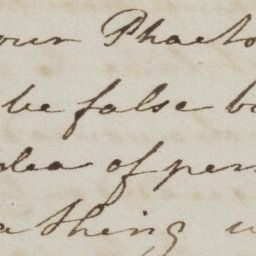 our Phaeto
be false b
dea of per
athing u